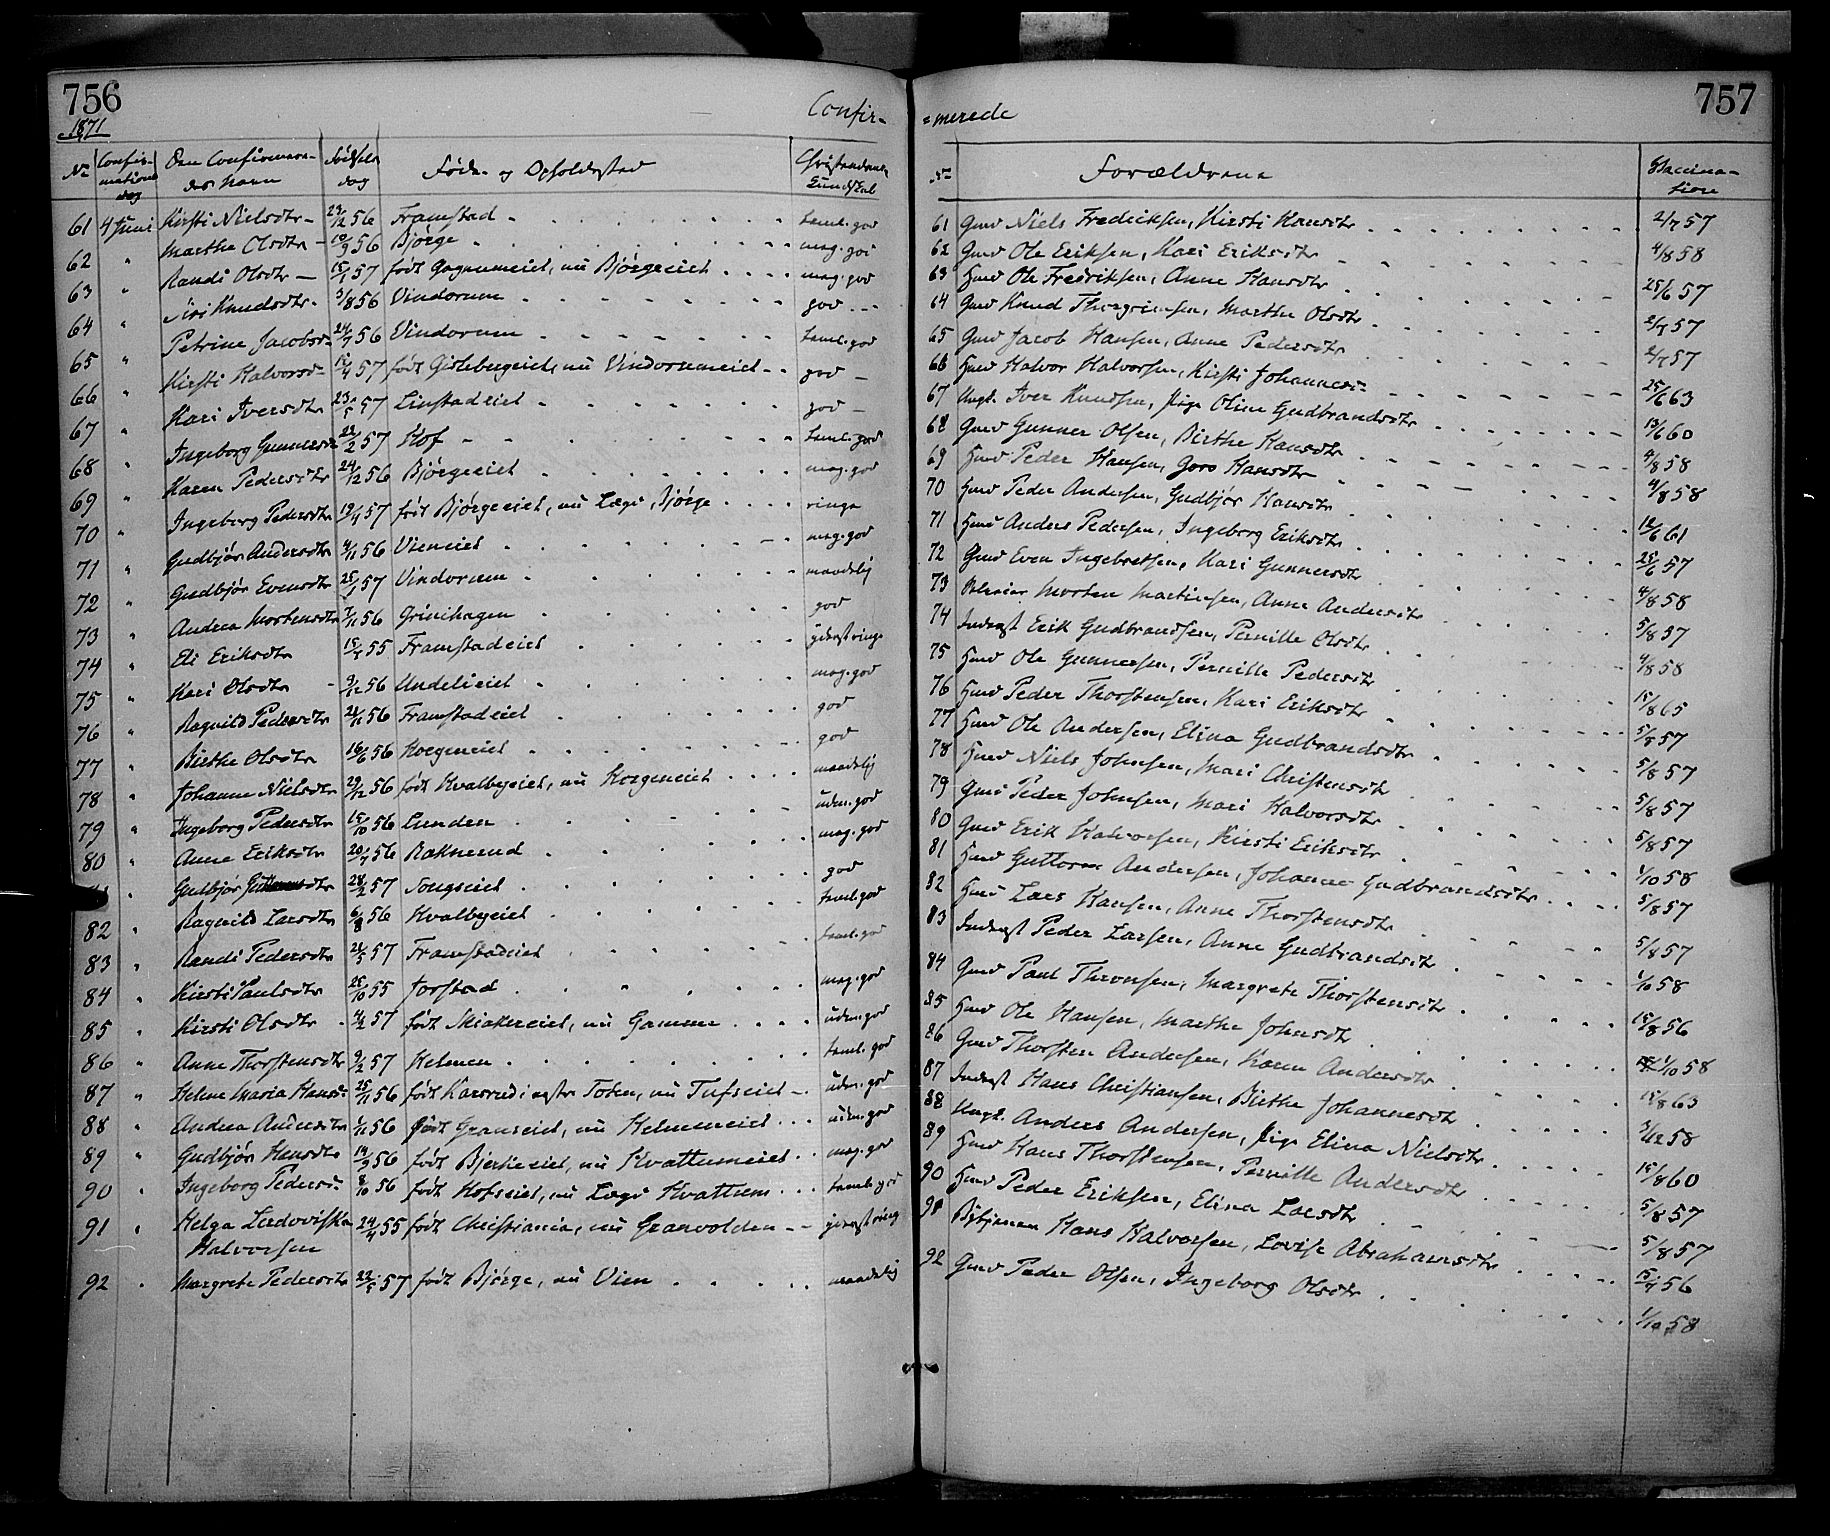 756
1871
Confir-
No Confir- Den Confirmere- Fødsels Føde- og Opholdssted Christendoms
mations des Navn dag Kundskab
dag
61 4 Juni Kirsti Nielsdtr 56 Framstad teml. god
62 " Marthe Olsdtr 10/9 56 Bjørge meg. god
63 " Randi Olsdtr 15/1 57 født Gagnumeiet, nu Bjørgeeiet meg. god
64 " Siri Knudsdtr 3/8 56 Vindorum god
65 " Petrine Jacobsd 56 Vindorum teml. god
66 " Kirsti Halvorsd 57 født Gislebergeiet, nu Vindorumeiet god
67 " Kari Iversdtr 57 Linstadeiet god
68 " Ingeborg Gunnersd 22/2 57 Hof teml. god
69 " Karen Pedersdtr 24/12 56 Bjørgeeiet meg. god
70 " Ingeborg Pedersdtr 57 født Bjørgeeiet, nu Lægd Bjørge ringe
71 " Gudbjør Andersdtr 4/11 56 Vieneiet meg. god
72 " Gudbjør Evensdtr 25/1 57 Vindorum maadelig
73 " Andrea Mortensdtr 7/11 56 Grinihagen god
74 " Eli Eriksdtr 55 Framstadeiet yderst ringe
75 " Kari Olsdtr 3/12 56 Undelieiet meg. god
76 " Ragnild Pedersdtr 56 Framstadeiet god
77 " Birthe Olsdtr 16/6 56 Korgeneiet god
78 " Johanne Nielsdtr 29/12 56 født Kvalbyeiet, nu Korgeneiet maadelig
79 " Ingeborg Pedersdtr 15/10 56 Lunden udm. god
80 " Anne Eriksdtr 56 Raknerud meg. god
" Gudbjør Guttormsdtr 28/2 57 Songseiet god
82 " Ragnild Larsdtr 6/8 56 Kvalbyeiet teml. god
83 " Randi Pedersdtr 57 Framstadeiet teml. god
84 " Kirsti Paulsdtr 25/10 55 Jorstad meg. god
85 " Kirsti Olsdtr 4/2 57 født Skiakereiet, nu Gamme udm. god
86 " Anne Thorstensdtr 9/2 57 Helmen teml. god
87 " Helene Maria Hansd 25/11 56 født Kaserud i vestre Toten, nu Tufseiet udm. god
88 " Andrea Andersdtr 1/11 56 født Granseiet, nu Helmeneiet udm. god
89 " Gudbjør Hansdtr 19/9 56 født Bjerkeeiet, nu Kvattumeiet meg. god
90 " Ingeborg Pedersd 8/10 56 født Hofseiet, nu Lægd Kvattum teml. god
91 " Helga Ludoviska 24/4 55 født Christiania, nu Granvolden yderst ring
Halvorsen
92 " Margrete Pedersdtr 57 født Bjørge, nu Vien maadelig
757
=merede
No Forældrene Vaccina-
tion
61 Gmd Niels Fredriksen, Kirsti Hansdtr 2/7 57
62 Gmd Ole Eriksen, Kari Eriksdtr 4/8 58
63 Hmd Ole Fredriksen, Anne Hansdtr 25/6 57
64 Gmd Knud Thorgrimsen, Marthe Olsdtr 2/7 57
65 Gmd Jacob Hansen, Anne Pedersdtr 2/7 57
66 Hmd Halvor Halvorsen, Kirsti Johannesd 25/6 63
67 Ungk. Iver Knudsen, Pige Oline Gudbrandsdtr 13/6 60
68 Gmd Gunner Olsen, Birthe Hansdtr 4/8 58
69 Hmd Peder Hansen, Goro Hansdtr 4/8 58
70 Hmd Peder Andersen, Gudbjør Hansdtr 12/6 61
71 Hmd Anders Pedersen, Ingeborg Eriksdtr 25/6 57
72 Gmd Even Ingebretsen, Kari Gunnersdtr 4/8 58
73 Morten Martinsen, Anne Andersdtr 5/8 57
74 Inderst Erik Gudbrandsen, Pernille Olsdtr 4/8 58
75 Hmd Ole Gunnersen, Pernille Pedersdtr 15/8 65
76 Hmd Peder Thorstensen, Kari Eriksdtr 5/8 57
77 Hmd Ole Andersen, Elina Gudbrandsdtr 5/8 57
78 Hmd Niels Johnsen, Mari Christensdtr 5/8 57
79 Gmd Peder Johnsen, Mari Halvorsdtr 5/8 57
80 Gmd Erik Halvorsen, Kirsti Eriksdtr 1/10 58
81 Hmd Guttorm Andersen, Johanne Gudbrandsdtr 5/8 57
82 Hmd Lars Hansen, Anne Thorstensdtr 5/8 57
83 Inderst Peder Larsen, Anne Gudbrandsdtr 1/10 58
84 Gmd Paul Thronsen, Margrete Thorstensdtr 15/8 56
85 Hmd Ole Hansen, Marthe Johnsdtr 1/10 58
86 Gmd Thorsten Andersen, Karen Andersdtr 15/8 63
87 Inderst Hans Christiansen, Birthe Johannesdtr 3/12 58
88 Ungk. Anders Andersen, Pige Elina Nielsdtr 15/8 60
89 Hmd Hans Thorstensen, Pernille Andersdtr 5/8 57
90 Hmd Peder Eriksen, Elina Larsdtr 5/8 57
91 Hans Halvorsen, Lovise Abrahamsdtr 56
92 Gmd Peder Olsen, Ingeborg Olsdtr 1/10 58